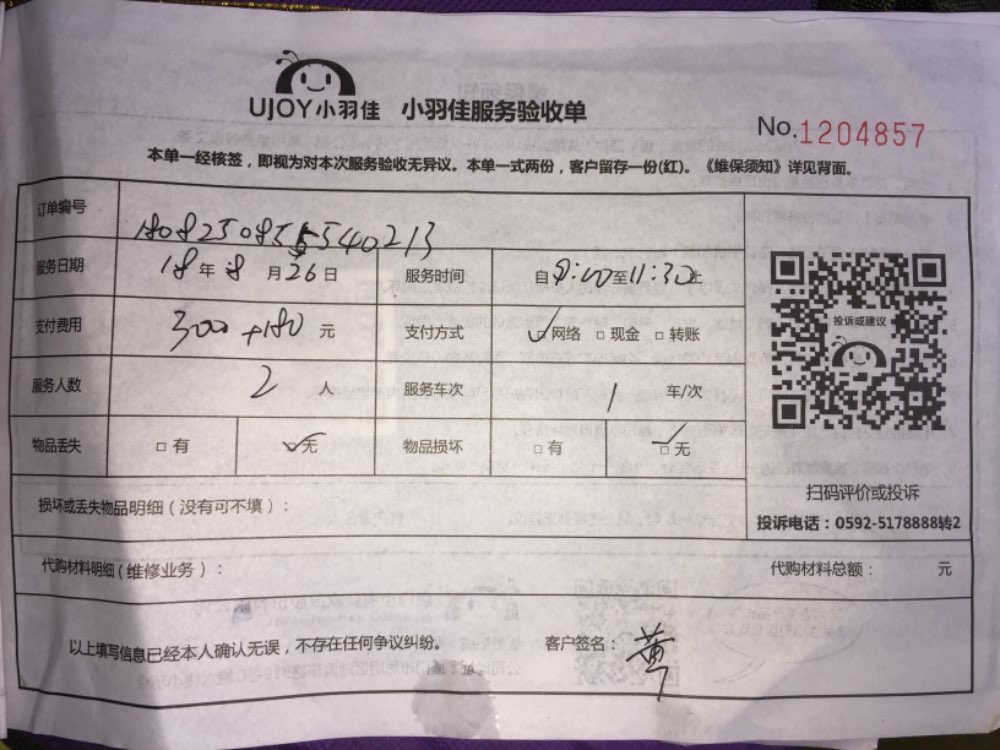 UJOY小羽佳 小羽佳服务验收单
No.1204857
本单一经核签，即视为对本次服务验收无异议。本单一式两份，客户留存一份(红)。《维保须知》详见背面。
订单编号
服务日期 18年8月26日 服务时间 自9:00至11:30止
支付费用 300+180元 支付方式 网络 现金 转账
服务人数 2人 服务车次 1车/次
物品丢失 有 无 物品损坏 有 无
投诉或建议
扫码评价或投诉
投诉电话：0592-5178888转2
损坏或丢失物品明细（没有可不填）：
代购材料明细(维修业务)： 代购材料总额： 元
以上填写信息已经本人确认无误，不存在任何争议纠纷。 客户签名：黄